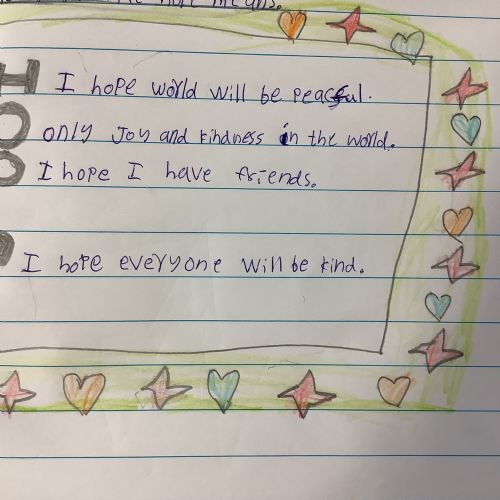 means.
H I hope world will be peacful.
O only Joy and kindness in the world.
I hope I have friends.
I hope everyone will be kind.